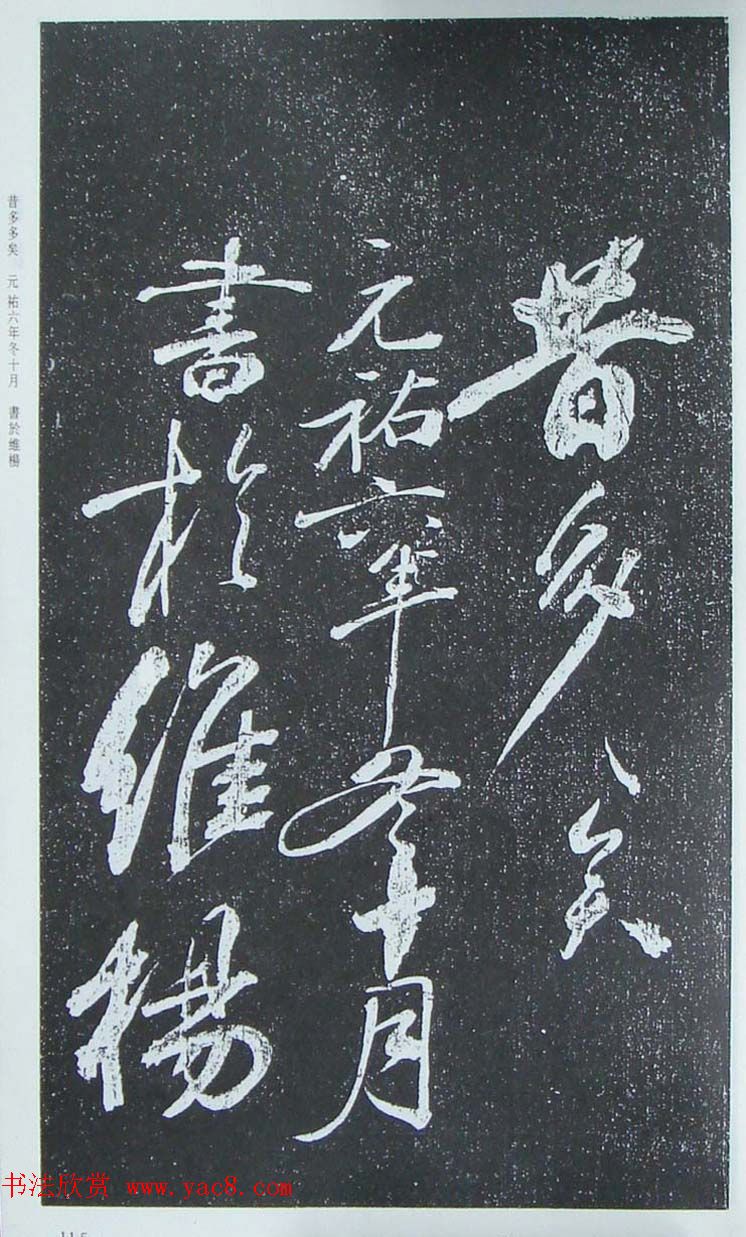 昔多〻矣
元祐六年冬十月
書於維楊
昔多多矣　元祐六年冬十月　書於維楊
书法欣赏 www.yac8.com
115